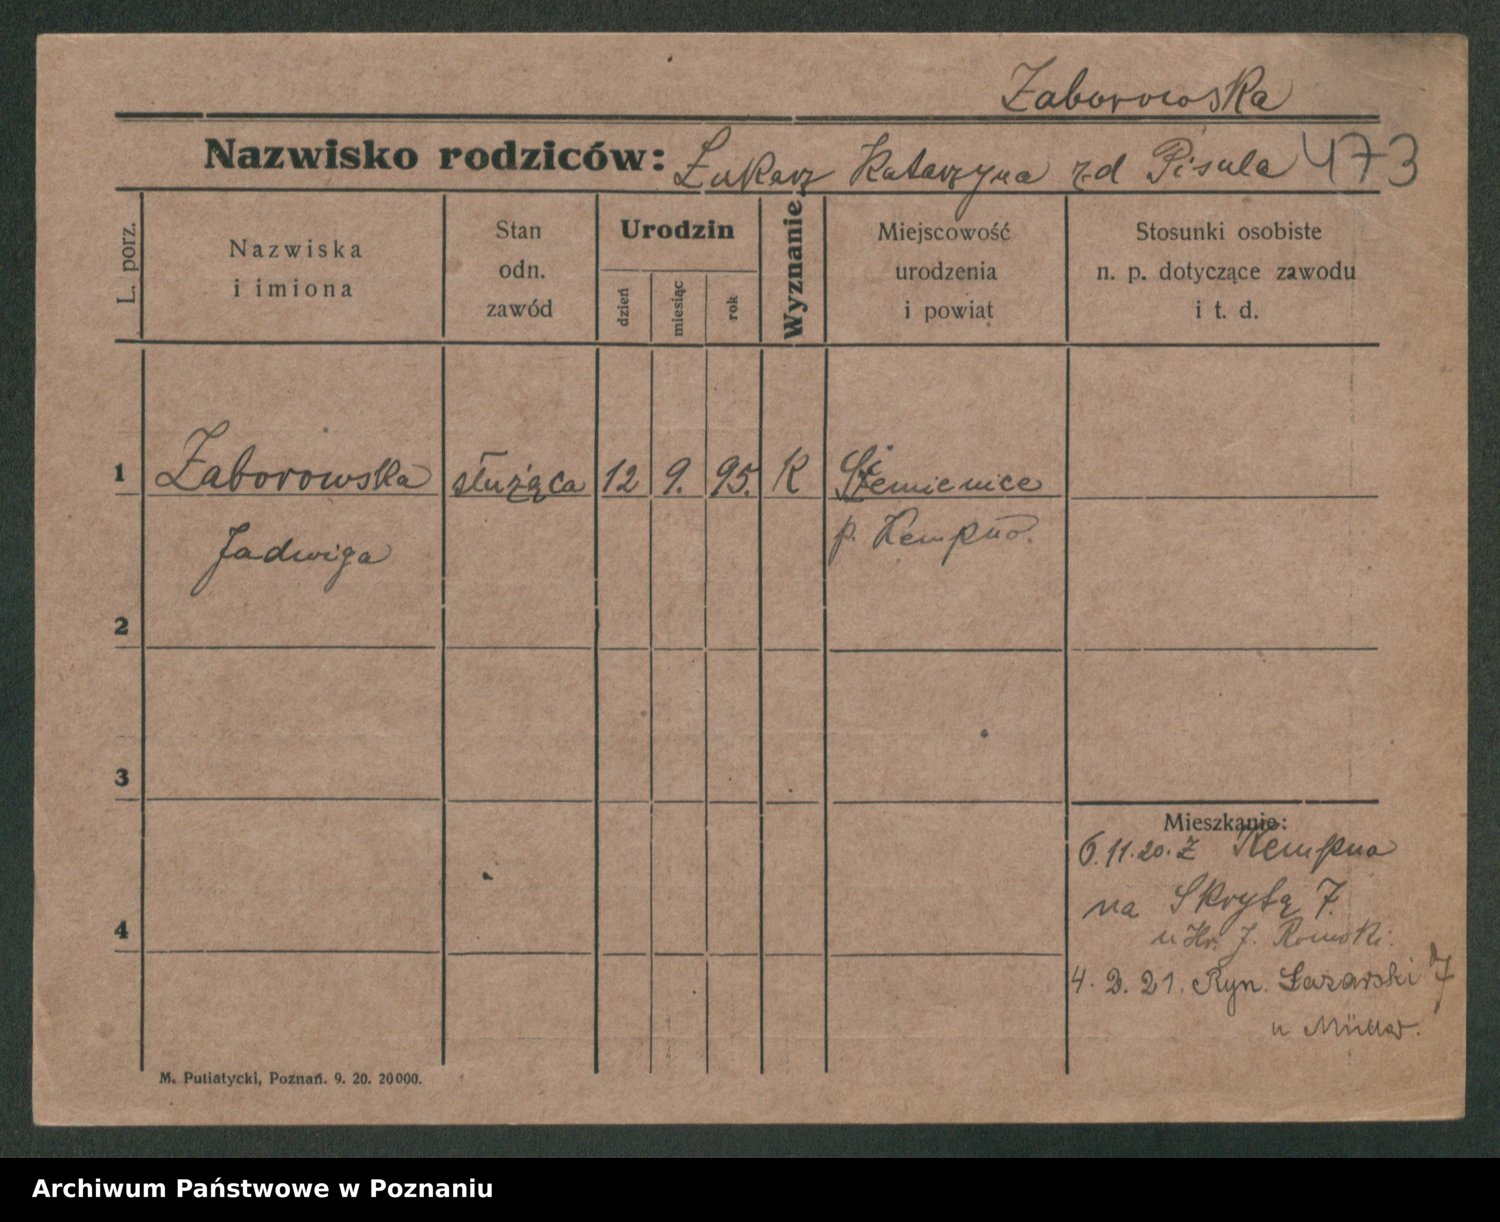 Zaborowska
Nazwisko rodziców: Łukasz Katarzyna z d Pisula 473
L. porz.
Nazwiska
i imiona
Stan
odn.
zawód
Urodzin
dzień
miesiąc
rok
Wyznanie
Miejscowość
urodzenia
i powiat
Stosunki osobiste
n. p. dotyczące zawodu
i t. d.
1 Zaborowska służąca 12 9. 95. K Siemienice
Jadwiga p. Kempno.
2
3
Mieszkanie:
6.11.20. z Kempna
na Skrytą 7.
4
u Hr. J.
4. 2. 21. Ryn. Łazarski 7
u Müller.
M. Putiatycki, Poznań. 9. 20. 20000.
Archiwum Państwowe w Poznaniu